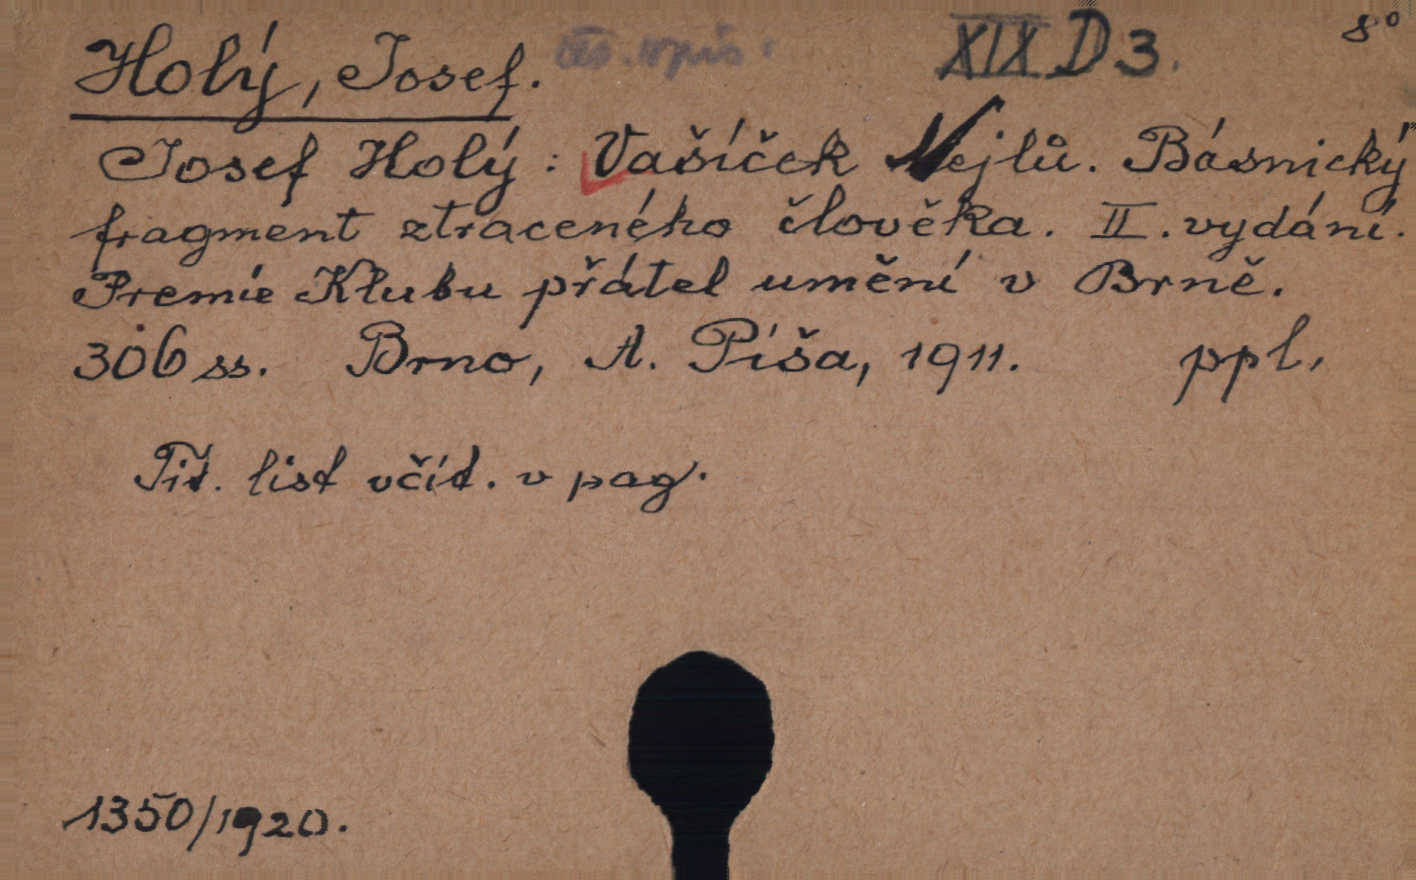 Holý, Josef.
XIX D 3.
8°
Josef Holý: Vašíček Nejlů. Básnický
fragment ztraceného člověka. II. vydání.
Premie Klubu přátel umění v Brně.
306 ss. Brno, A. Píša, 1911. ppl.
Tit. list včít. v pag.
1350/1920.